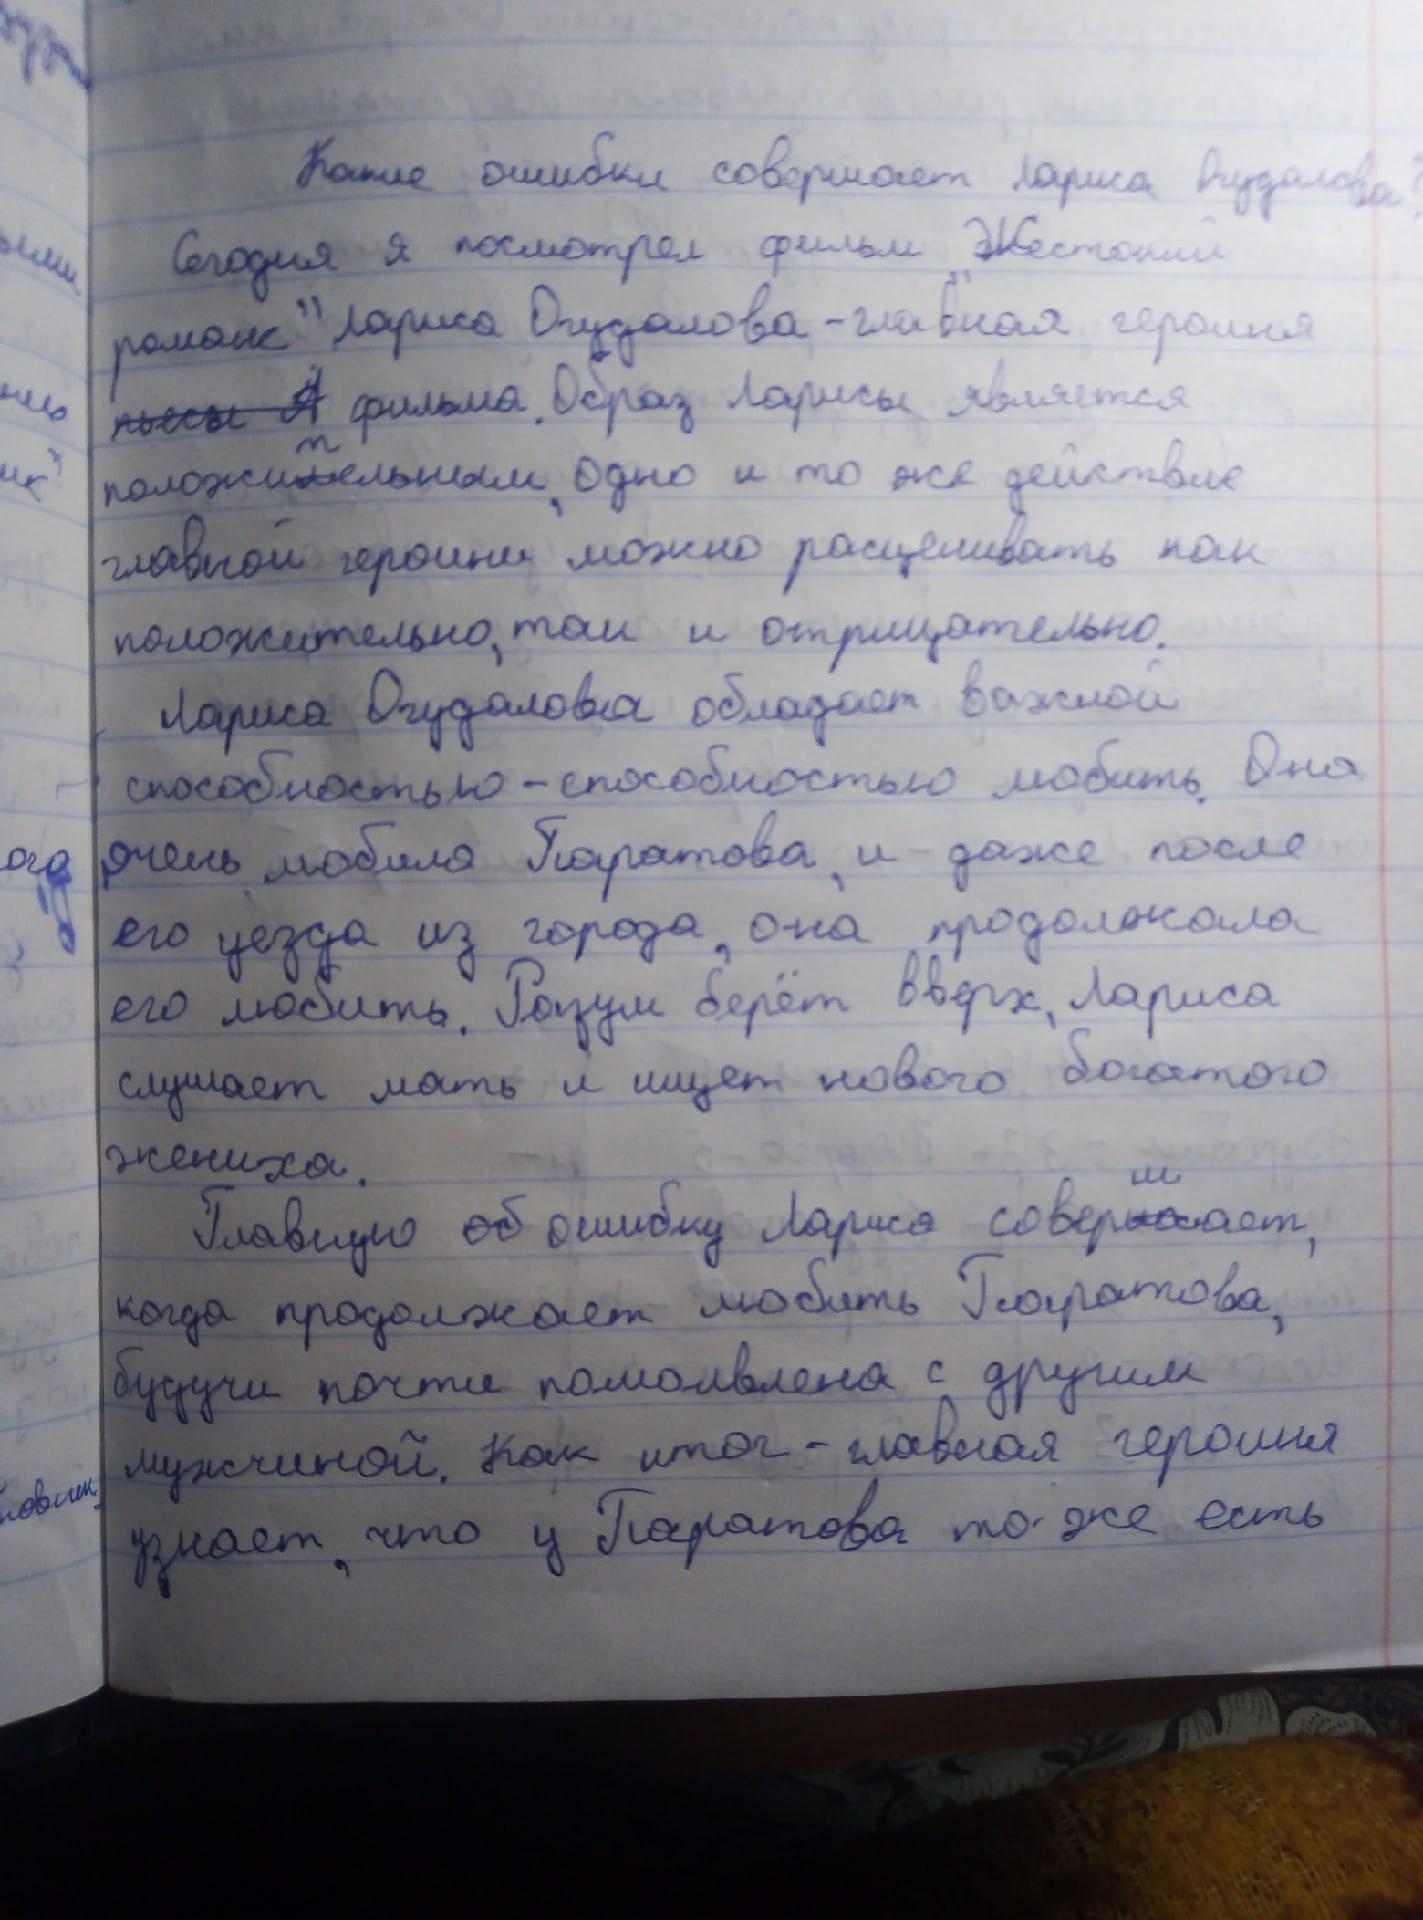 Какие ошибки совершает Лариса Огудалова?
Сегодня я посмотрел фильм „Жестокий
романс" Лариса Огудалова - главная героиня
пьесы А фильма. Образ Ларисы является
положительным, одно и то же действие
главной героини можно расценивать как
положительно, так и отрицательно.
Лариса Огудалова обладает важной
способностью - способностью любить. Она
очень любила Паратова, и даже после
его уезда из города, она продолжала
его любить. Разум берёт вверх, Лариса
слушает мать и ищет нового богатого
жениха.
Главную об ошибку Лариса совершает,
когда продолжает любить Паратова,
будучи почти помолвлена с другим
мужчиной. Как итог - главная героиня
узнает, что у Паратова то же есть